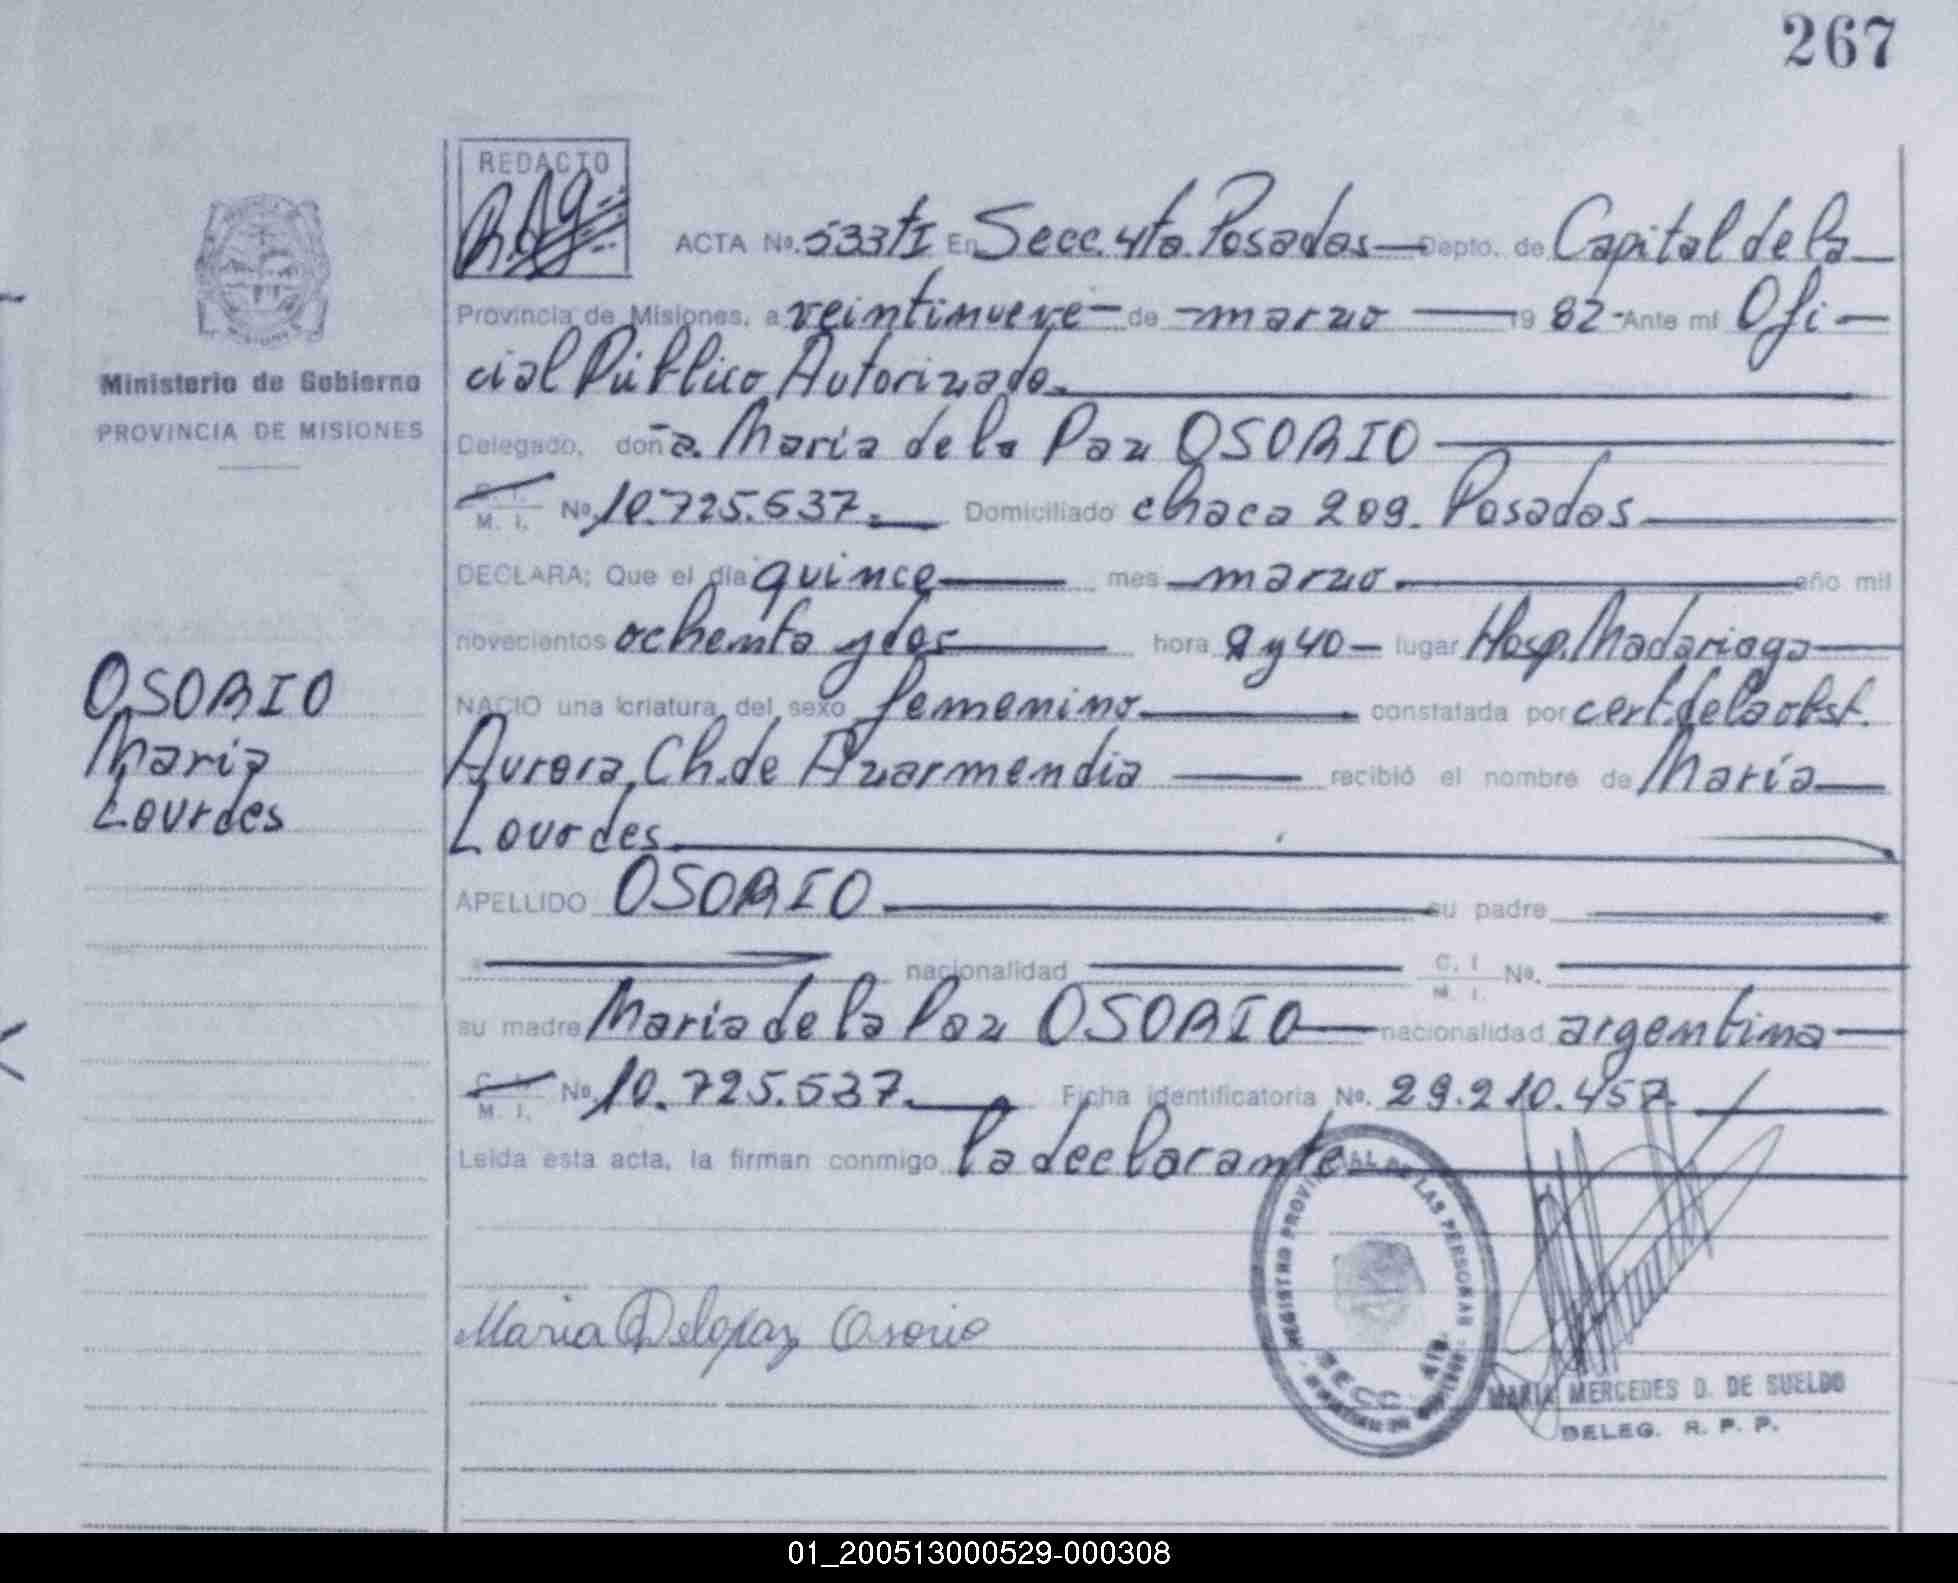 267
REDACTO
ACTA Nº. 533 tI En Secc. 4ta. Posadas Depto. de Capital de la
Provincia de Misiones, a veintinueve de marzo 19 82 Ante mí Ofi-
cial Público Autorizado.
Ministerio de Gobierno
PROVINCIA DE MISIONES
Delegado, doña. Maria de la Paz OSORIO
C. I.
M. I. Nº. 10.725.537. Domiciliado chaca 209. Posadas
DECLARA; Que el día quince mes marzo. año mil
novecientos ochenta y dos hora 9 y 40 lugar Hosp. Madariaga
OSORIO
Maria
Lourdes
NACIO una criatura del sexo femenino constatada por cert. de la obst.
Aurora Ch. de Azarmendia recibió el nombre de María
Lourdes.
APELLIDO OSORIO su padre
nacionalidad C. I. M. I. Nº.
su madre Maria de la Paz OSORIO nacionalidad argentina
M. I. Nº. 10.725.537. Ficha identificatoria Nº. 29.210.457.
Leída esta acta, la firman conmigo la declarante
Maria Delapaz Osorio
REGISTRO PROVINCIAL DE LAS PERSONAS
SECC. 4TA.
MARIA MERCEDES D. DE SUELDO
DELEG. R. P. P.
01_200513000529-000308